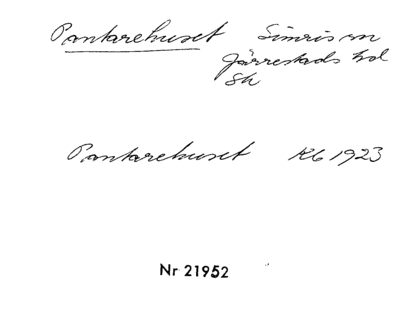 Pantarehuset Simris sn
Järrestads hd
Sk
Pantarehuset Kb 1923
Nr 21952